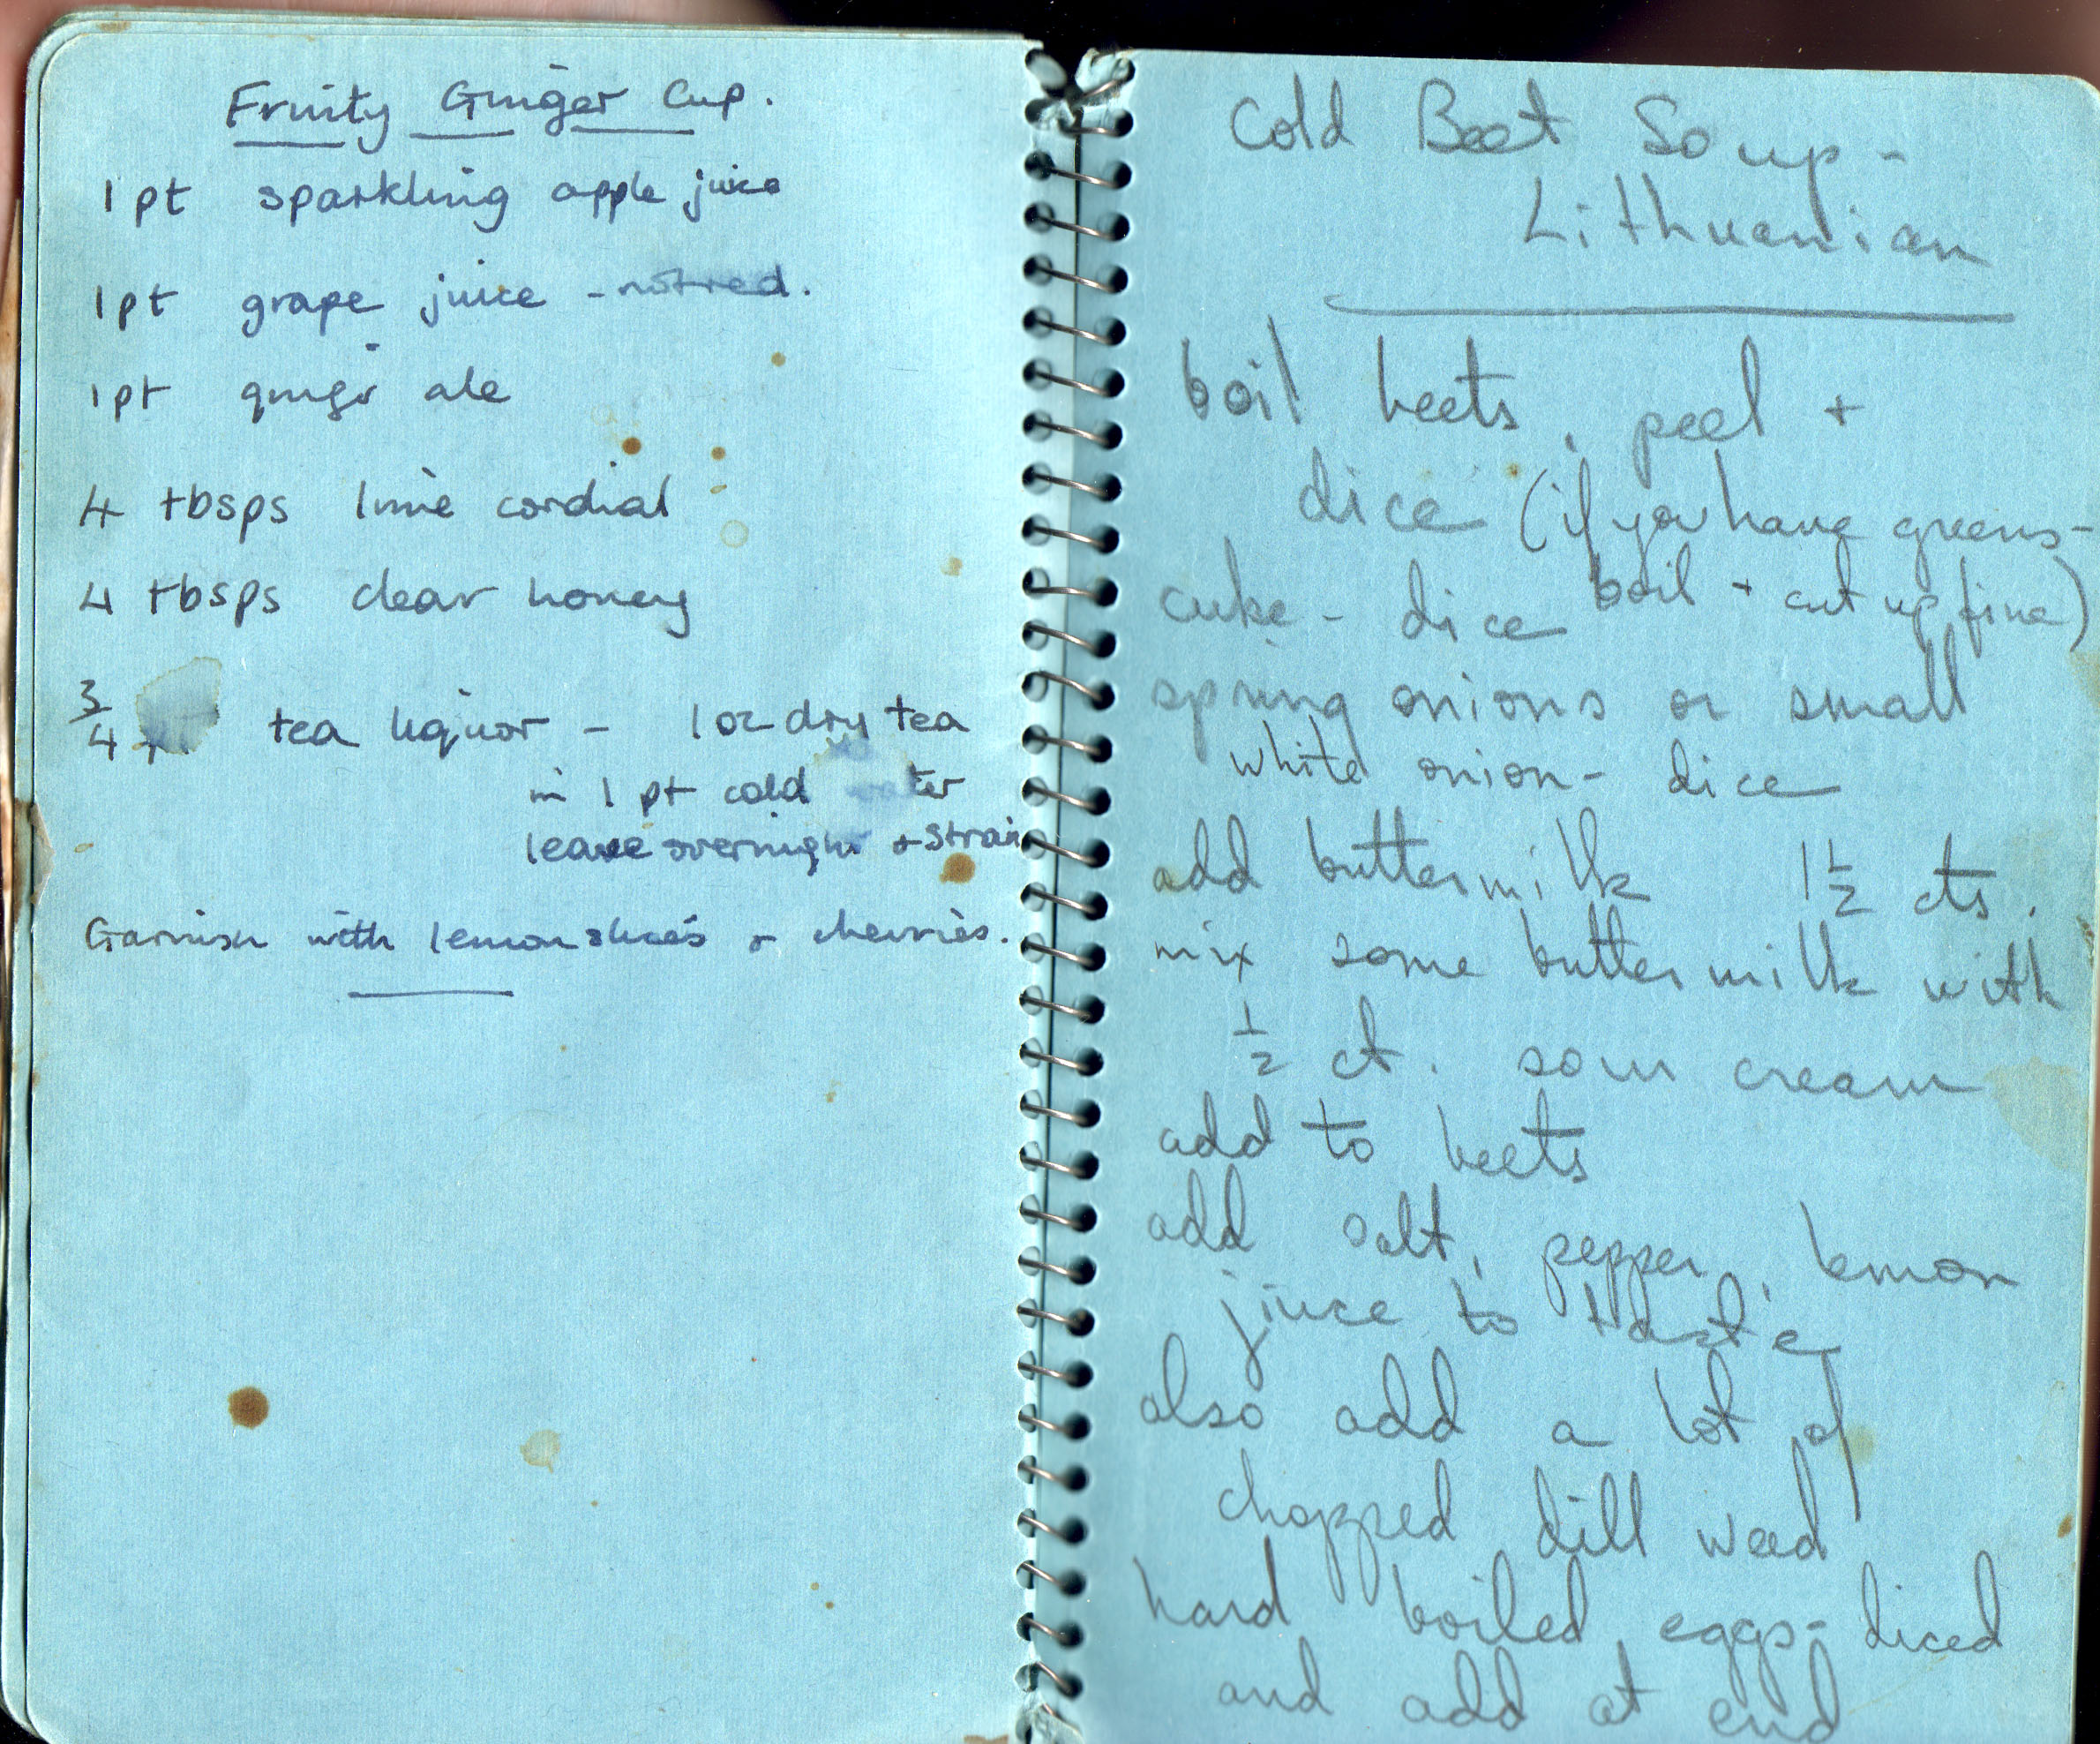 Fruity Ginger Cup.
1 pt sparkling apple juice
1 pt grape juice - not red.
1 pt ginger ale
4 tbsps lime cordial
4 tbsps clear honey
3/4 tea liquor - 1 oz dry tea
in 1 pt cold water
leave overnight + strain
Garnish with lemon slices + cherries.
Cold Beet Soup -
Lithuanian
boil beets, peel +
dice (if you have greens -
boil + cut up fine)
cuke - dice
spring onions or small
white onion - dice
add buttermilk 1 1/2 cts.
mix some buttermilk with
1/2 ct. sour cream
add to beets
add salt, pepper, lemon
juice to taste
also add a lot of
chopped dill weed
hard boiled eggs - diced
and add at end